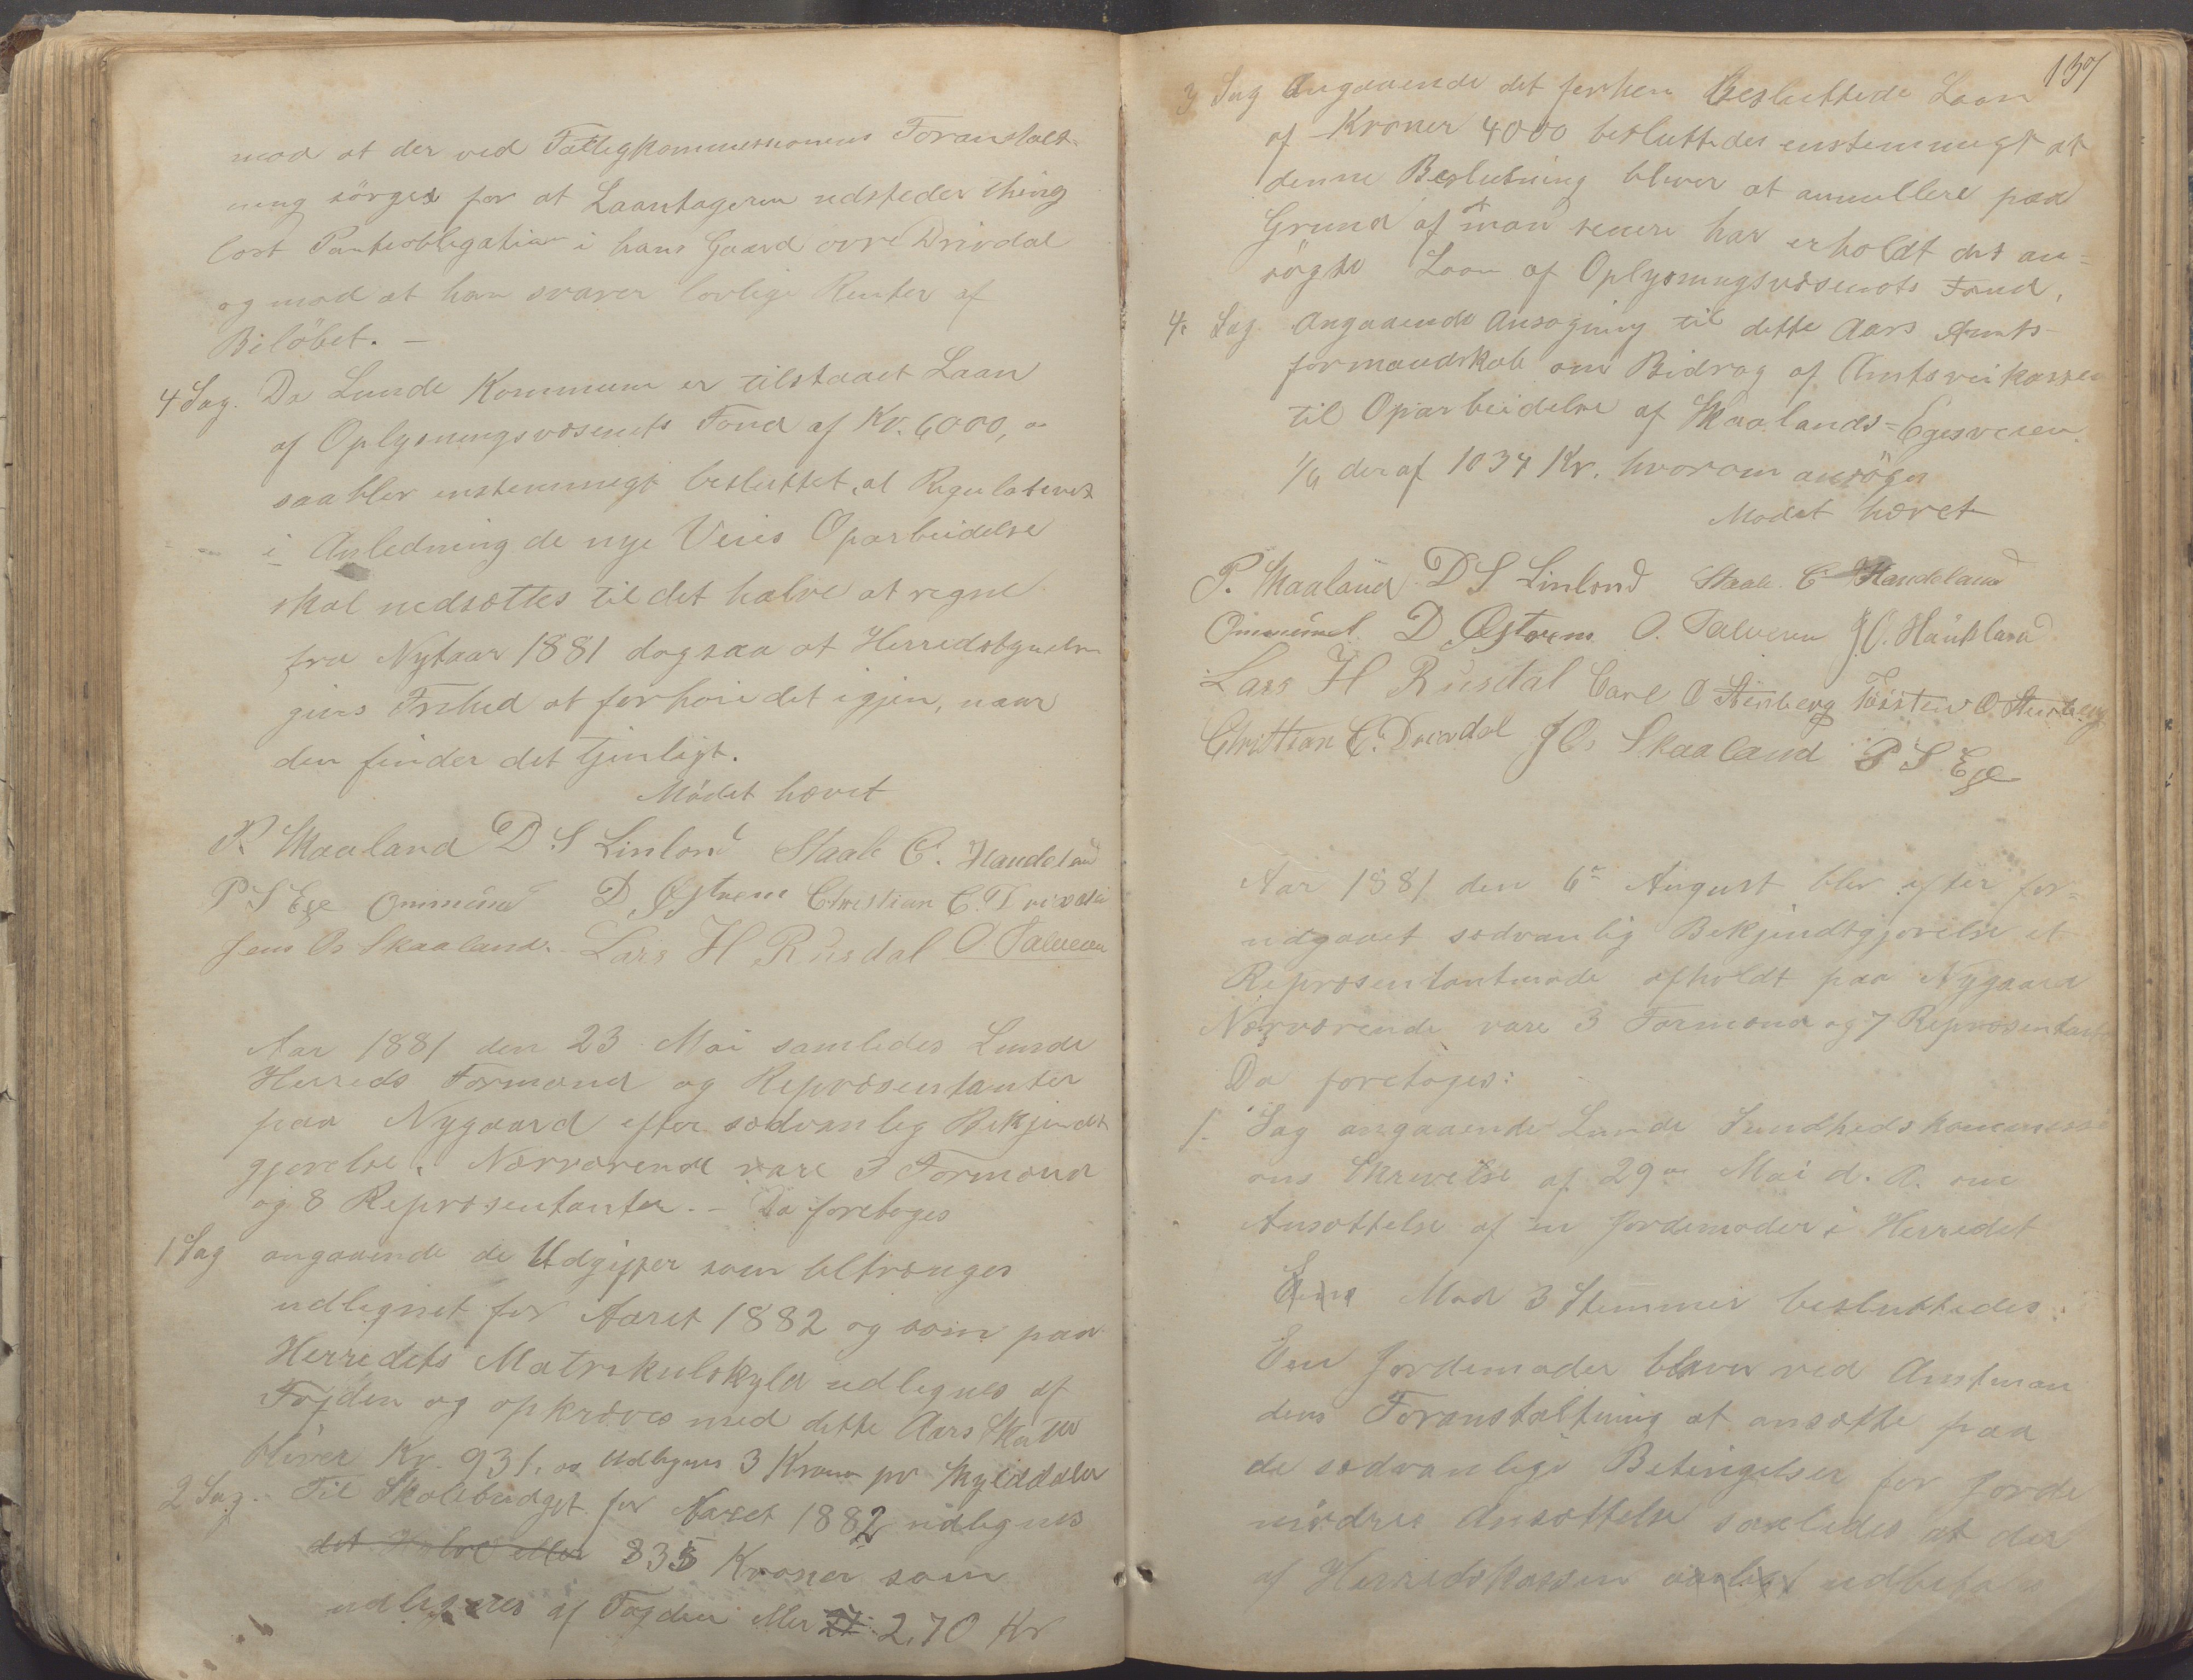 mod at der ved Fattigkommissionens Foranstalt-
ning sörges for at Laantageren udsteder thing
løst Panteobligation i hans Gaard øvre Drivdal
og mod at han svarer lovlige Renter af
Bilöbet. —
4 Sag. Da Lunde Kommune er tilstaaet Laan
af Oplysningsvæsenets Fond af Kr. 6000,
saa blev enstemmigt besluttet, at Regulativet
i Anledning de nye Veies Oparbeidelse
skal nedsættes til det halve at regne
fra Nytaar 1881 dog saa at Herredstyrelsen
gives Frihed at forhøie det igjen, naar
den finder det tjenligt.
Mödet hævet
P. Skaaland D S Linlond Staale C. Haudeland
P S Ege Ommund D Østrem Christian C. Drivdal
Jens Os Skaaland. Lars H Rusdal O Salveson
Aar 1881 den 23 Mai samledes Lunde
Herreds Formænd og Repræsentanter
paa Nygaard efter sædvanlig Bekjendt
gjørelse. Nærværende vare 3 Formænd
og 8 Repræsentanter. — Da foretoges
1 Sag angaaende de Udgifter som tiltrænges
udlignet for Aaret 1882 og som paa
Herredets Matrikulskyld udlignes af
Fogden og opkræves med dette Aars Skatter
bliver Kr. 931, og udlignes 3 Kroner pr Skylddaler
2 Sag. Til Skolebudget for Aaret 1882 udlignes
det Halve eller 835 Kroner som
udlignes af Fogden eller 27 2,70 Kr
137
3 Sag Angaaende det forhen Besluttede Laan
af Kroner 4000 besluttedes enstemmigt at
denne Beslutning bliver at annullere paa
Grund af man senere har erholdt det an=
søgte Laan af Oplysningsvæsenets Fond.
4. Sag. Angaaende Ansøgning til dette Aars Amts-
formandskab om Bidrag af Amtsveikassen
til Oparbeidelse af Skaalands=Egesveien
1/4 deraf 1034 Kr. hvorom ansöges
Mødet hævet
P. Skaaland D S Linlond Staale C Haudeland
Ommund D Østrem O. Salveson J O. Haukland
Lars H Rusdal Carl O Stenberg Tosten O Stenberg
Christian C. Drivdal J Os Skaaland P S Ege
Aar 1881 den 6te August blev efter for=
udgaaet sædvanlig Bekjendtgjørelse et
Repræsentantmøde afholdt paa Nygaard
Nærværende vare 3 Formænd og 7 Repræsentanter
Da foretoges:
1. Sag angaaende Lunde Sundhedskommissi
ons Skrivelse af 29de Mai d. A. om
Ansættelse af en Jordemoder i Herredet
Mod 3 Stemmer besluttedes:
En Jordemoder bliver ved Amtman
dens Foranstaltning at ansætte paa
de sædvanlige Betingelser for Jorde
mødres Ansættelse saaledes at der
af Herredskassen aarligt udbeta